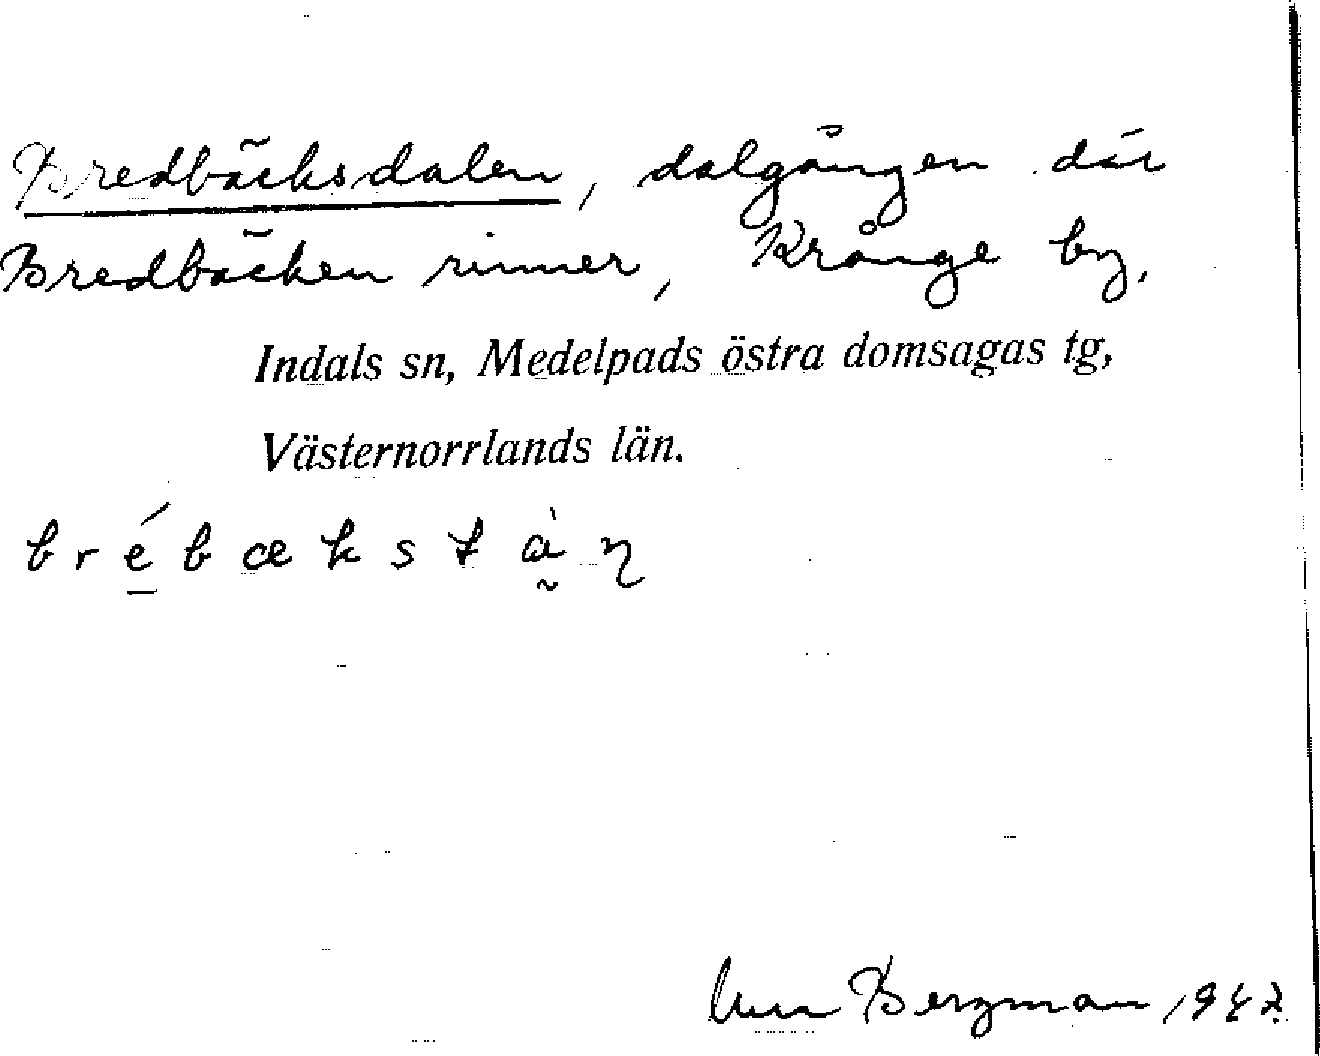 Bredbäcksdalen, dalgången där
Bredbäcken rinner, Krånge by,
Indals sn, Medelpads östra domsagas tg,
Västernorrlands län.
brébækstàn
Bergman 1942